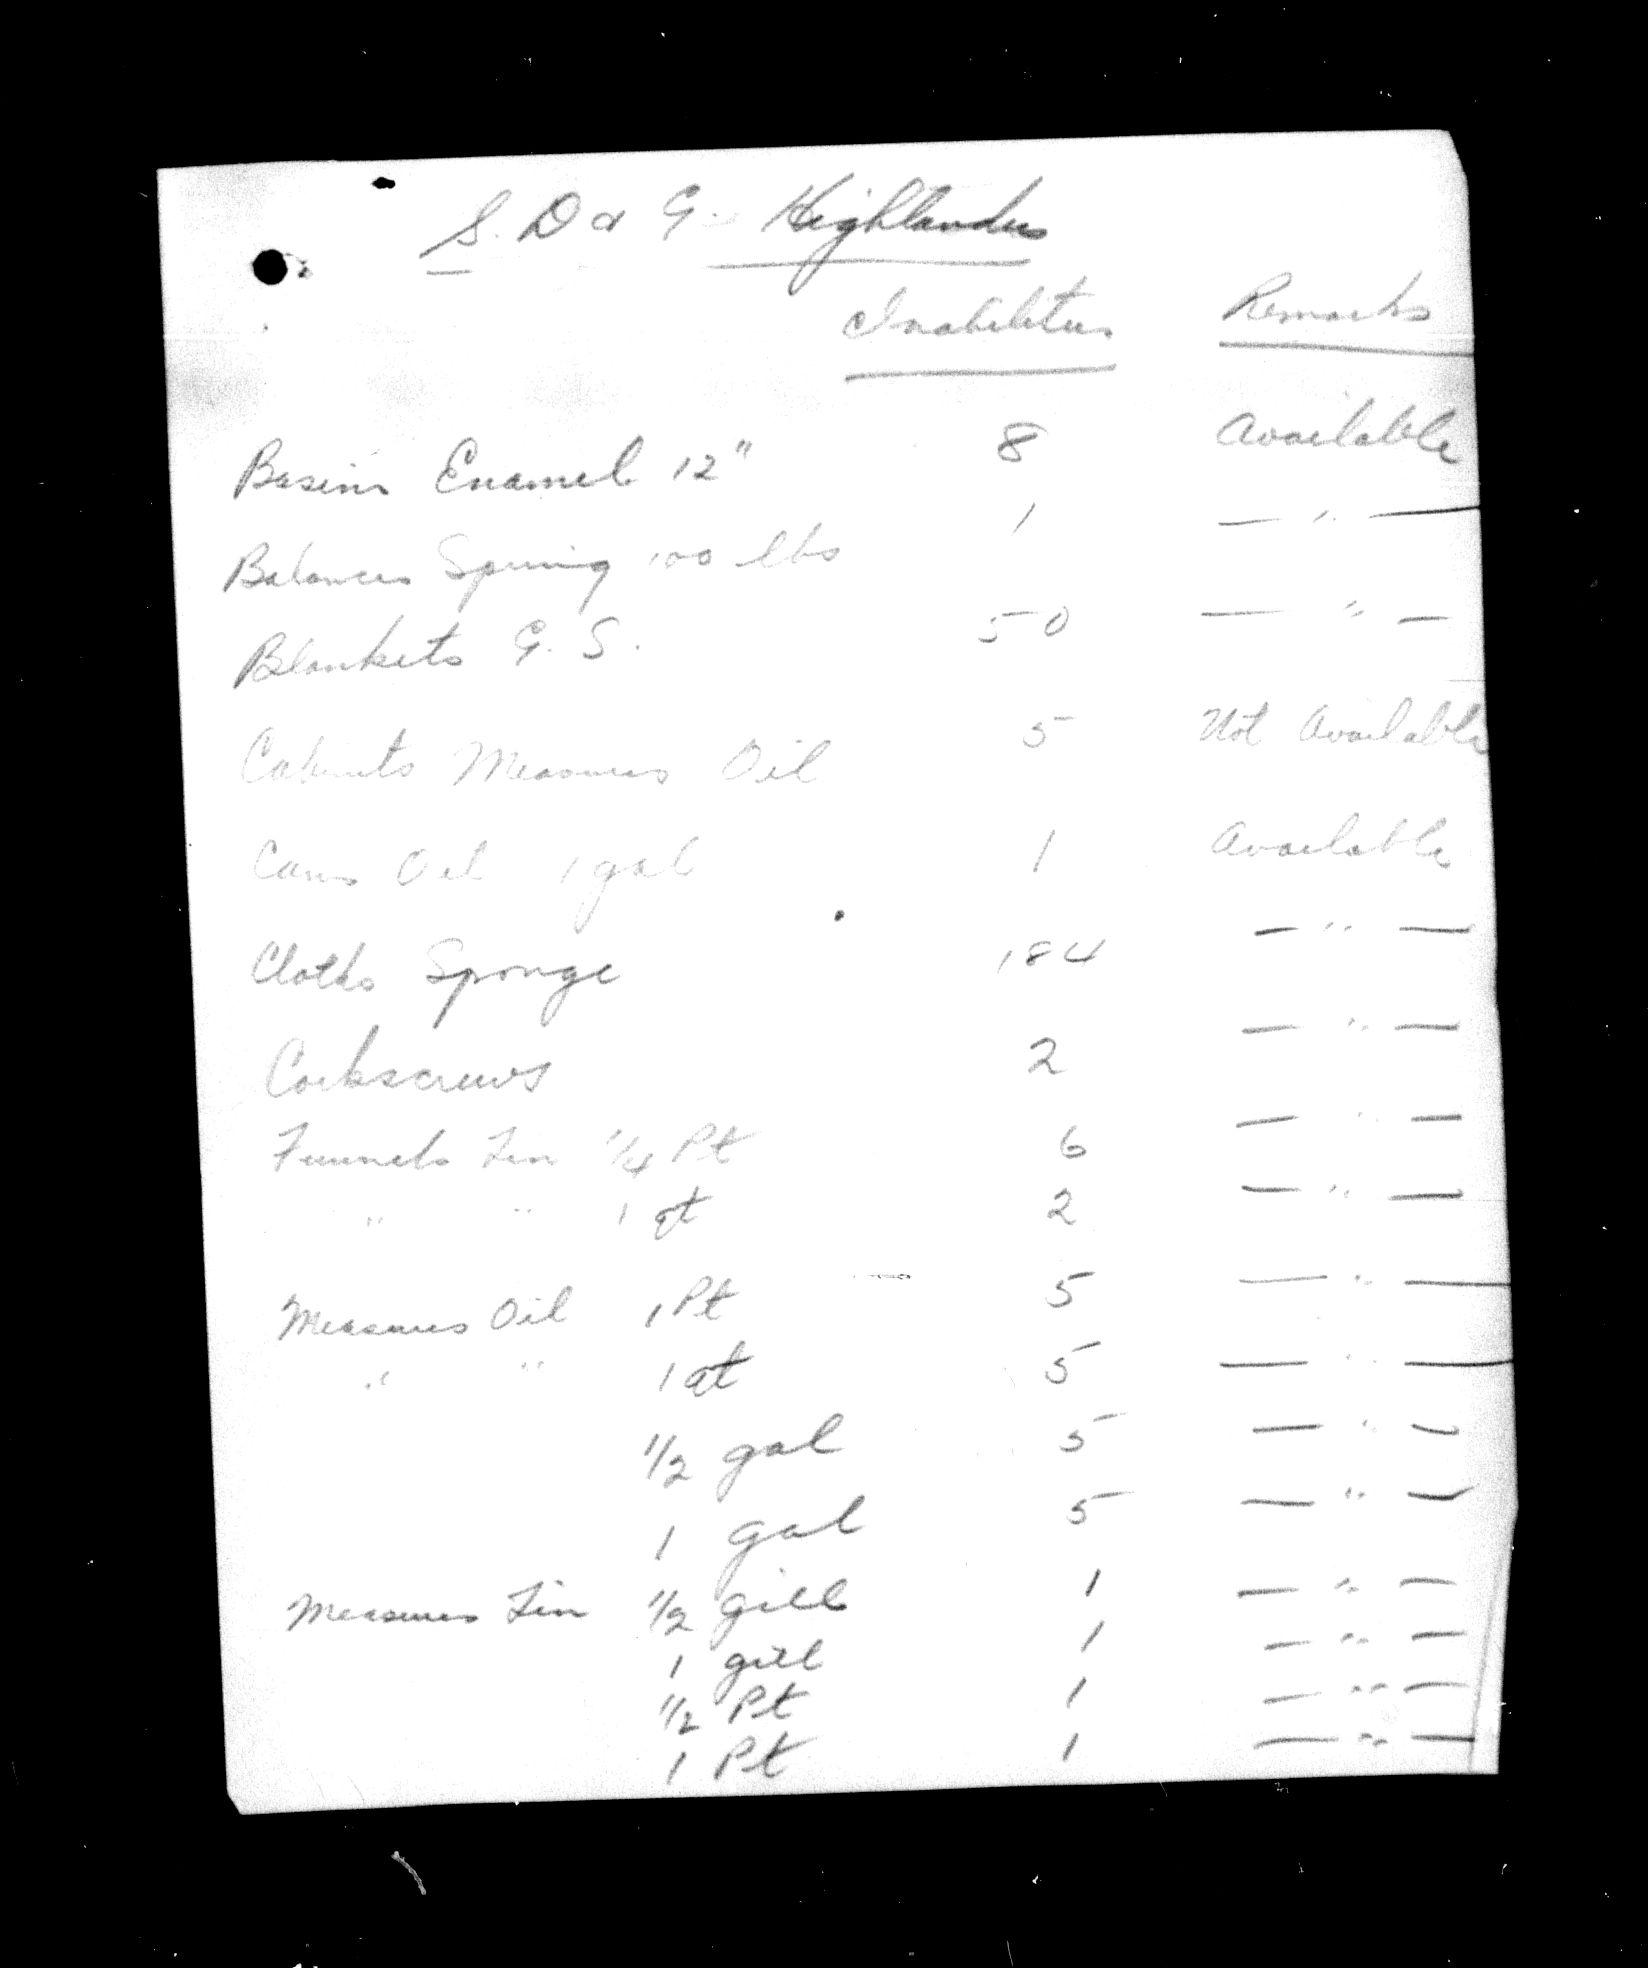 S. D & G. Highlanders
Inabilities Remarks
Basins Enamel 12" 8 Available
Balances Spring 100 lbs 1 — " —
Blankets G. S. 50 — " —
Cabinets Measures Oil 5 Not Available
Cans Oil 1 gal 1 Available
Cloths Sponge 184 — " —
Corkscrews 2 — " —
Funnels Tin 1/4 Pt 6 — " —
" " 1 qt 2 — " —
Measures Oil 1 Pt 5 — " —
" " 1 qt 5 — " —
1/2 gal 5 — " —
1 gal 5 — " —
Measures Tin 1/2 gill 1 — " —
1 gill 1 — " —
1/2 Pt 1 — " —
1 Pt 1 — " —